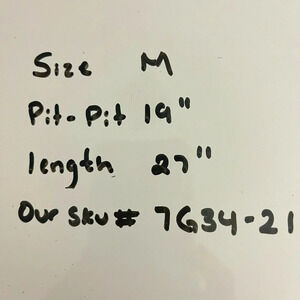 Size M
Pit-Pit 19"
length 27"
Our Sku# 7G34-21